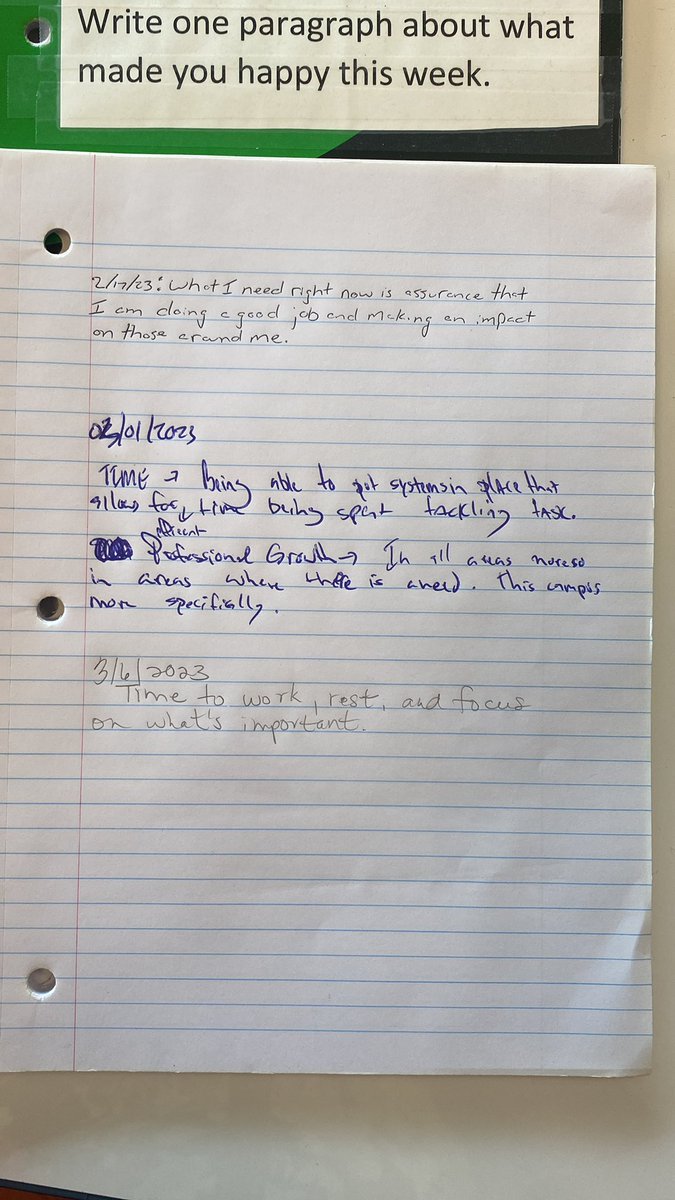 Write one paragraph about what
made you happy this week.
2/17/23: What I need right now is assurance that
I am doing a good job and making an impact
on those around me.
03/01/2023
TIME → Being able to put systems in place that
allow for time being spent tackling task.
efficent
Professional Growth → In all areas more so
in areas where there is a need. This campus
more specifically.
3/6/2023
Time to work, rest, and focus
on what's important.